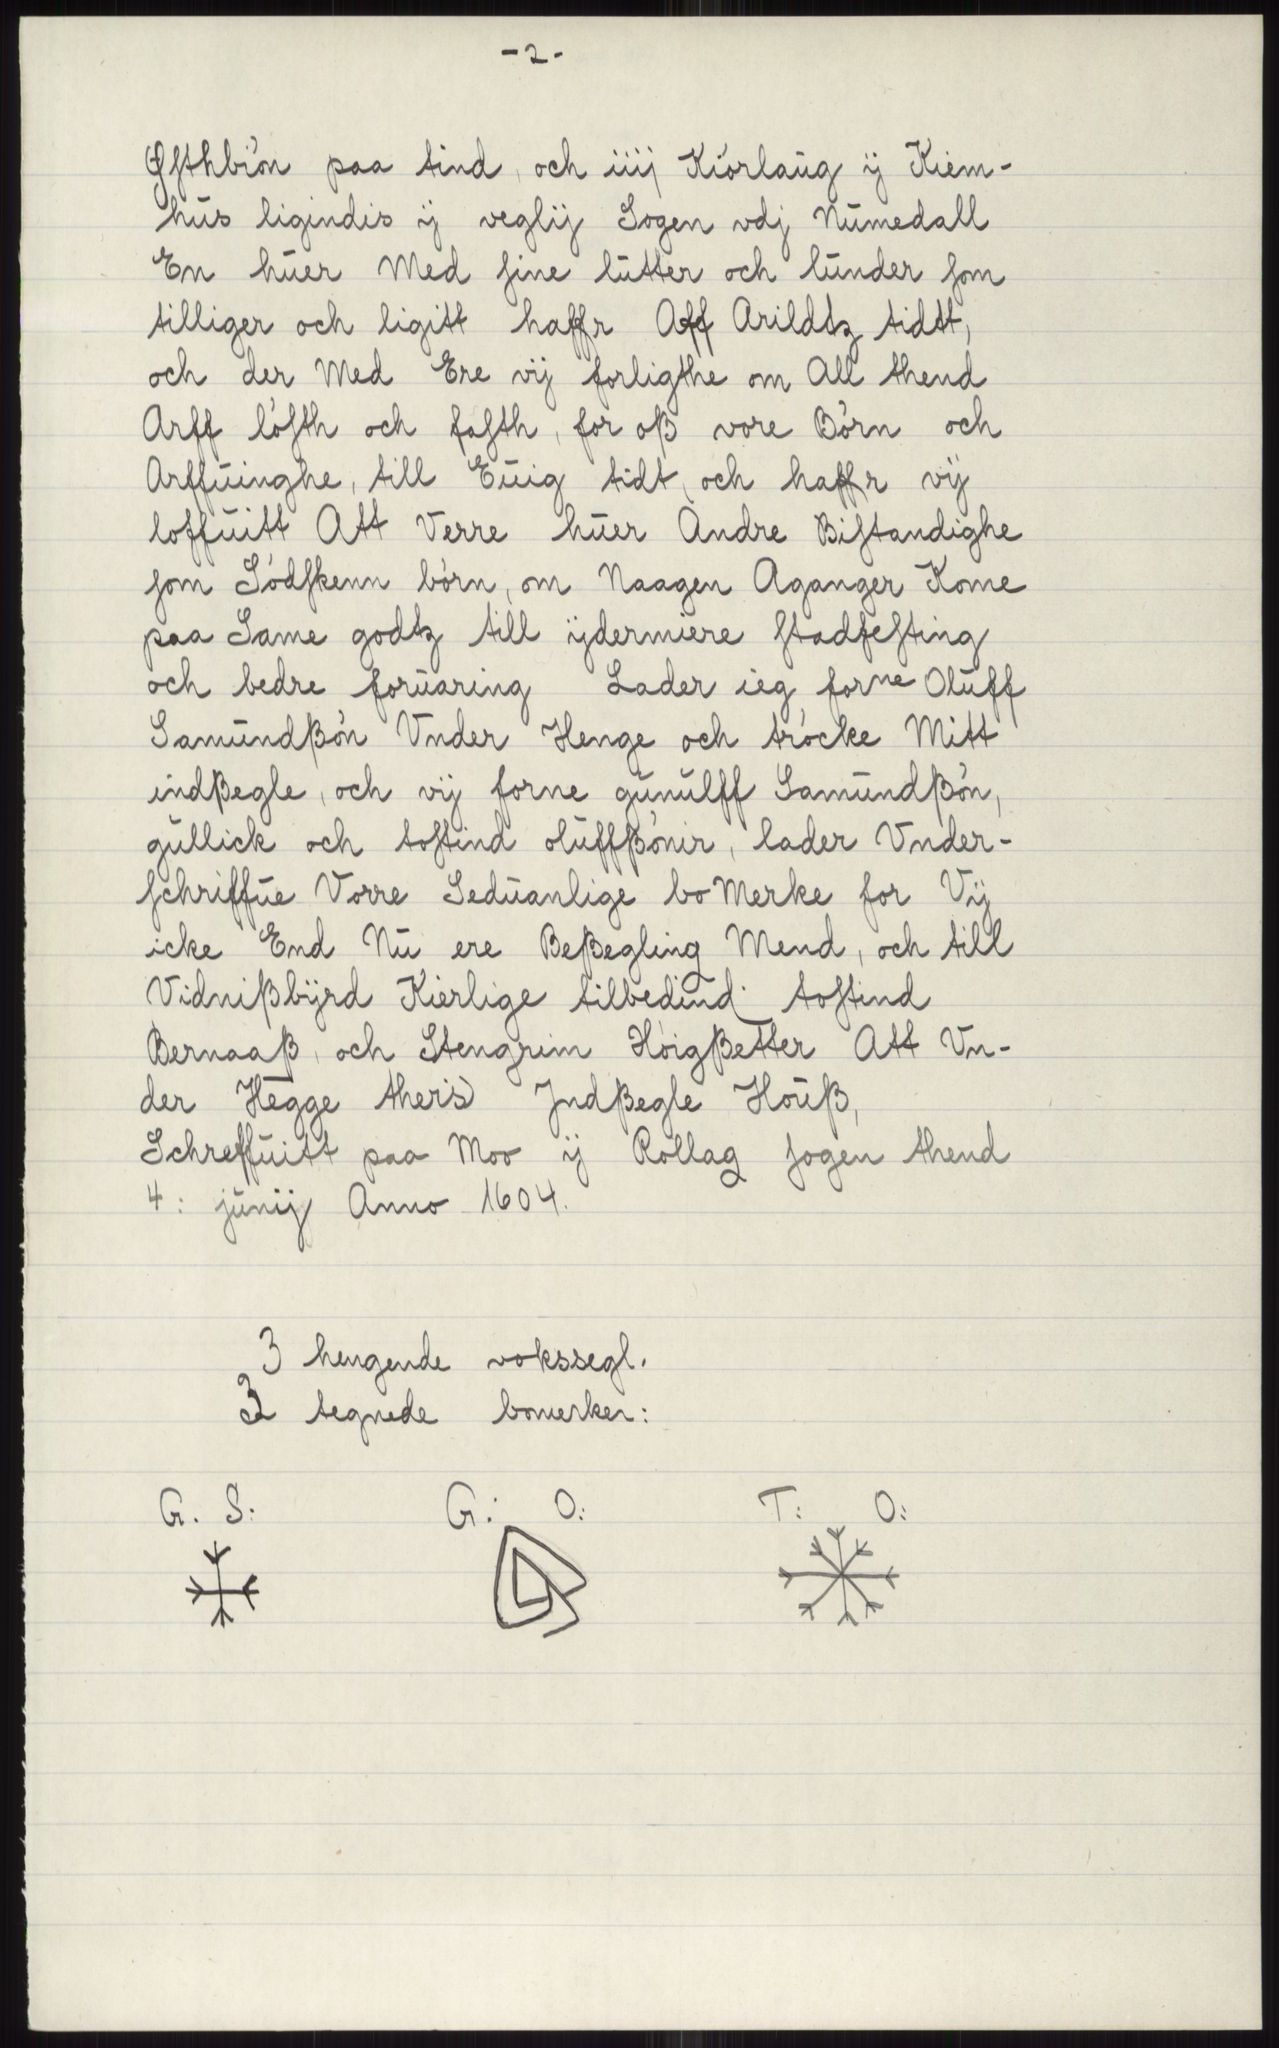 - 2 -
Østhbiön paa tind, och iiij Kiörlaug ij Kiem-
hus ligindis ij veglij Sogen vdj Numedall
En huer Med sine lutter och lunder som
tilliger och ligitt haffr Aff Arildtz tidtt,
och der Med Ere vij forligthe om All thend
Arff löfth och fasth, for oß vore Börn och
Arffuinghe, till Euig tidt, och haffr vij
loffuitt Att Verre huer Andre Bistandighe
som Södskenn börn, om Naagen Aganger Kome
paa Same godtz till ijdermiere stadfesting
och bedre foruaring Lader ieg forne Oluff
Samundßön Vnder Henge och tröcke Mitt
indßegle, och vij forne gunulff Samundßön,
gullick och tostind oluffßönir, lader Vnder-
schriffue Vorre Seduanlige bo Merke for Vij
icke End Nu ere Beßegling Mend, och till
Vidnißbÿrd Kierlige tilbedind tostind
Bernaaß, och Stengrim Höigßetter Att Vn-
der Hegge theris Jndßegle Houß,
Schreffuitt paa Moo ij Rollag sogen thend
4: junij Anno 1604.
3 hengende vokssegl.
3 tegnede bomerker:
G. S: G: O: T: O: